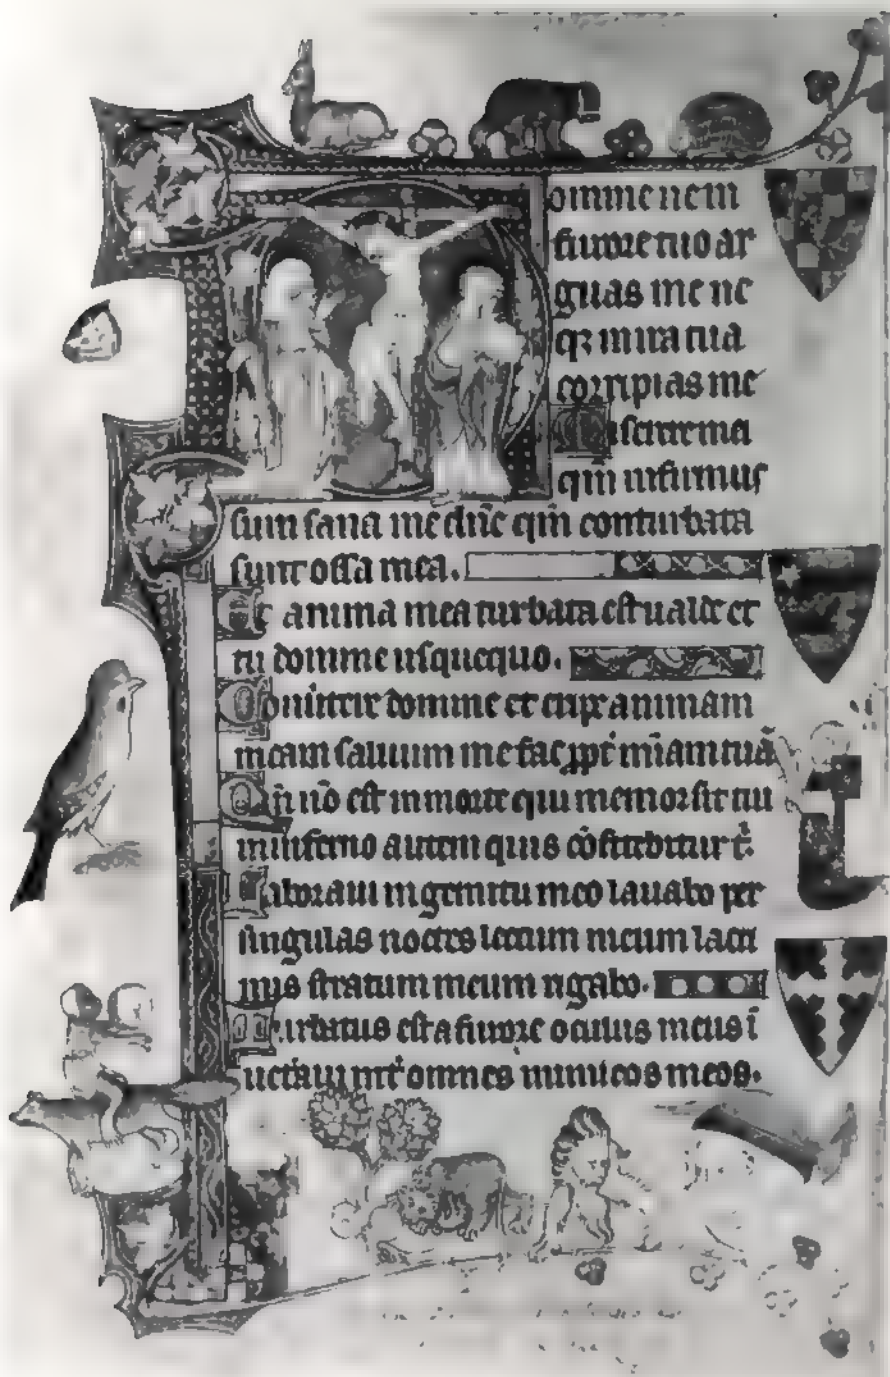 omine ne in
furore tuo ar
guas me ne
qȝ in ira tua
corripias me
Miserere mei
qm̄ infirmus
sum sana me dn̄e qm̄ conturbata
sunt ossa mea.
Et anima mea turbata est ualde et
tu domine usquequo.
Conuertere domine et eripe animam
meam saluum me fac ꝓpt̄ mīam tuā
Qm̄ nō est in morte qui memor sit tui
in inferno autem quis cōfitebitur t̄.
Laboraui in gemitu meo lauabo per
singulas noctes lectum meum lacri
mis stratum meum rigabo.
Turbatus est a furore oculus meus ī
ueteraui int̄ omnes inimicos meos.